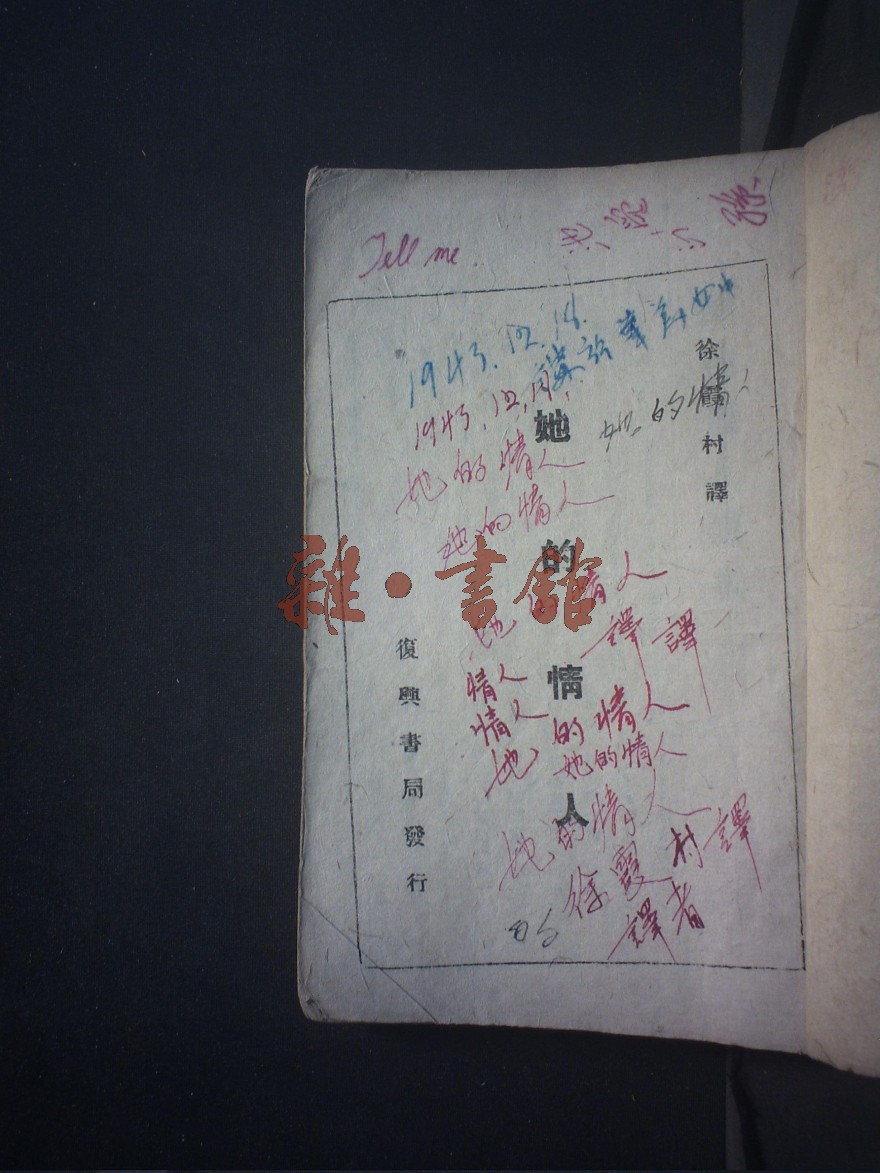 Tell me.
1943.12.18.
1943.12.
徐霞村譯
她的情人
她的情人
她的情人
她的情人
她的情人
雜·書館
譯 譯
情人
情人
她的情人
她的情人
她的情人
徐霞村譯
譯者
復興書局發行